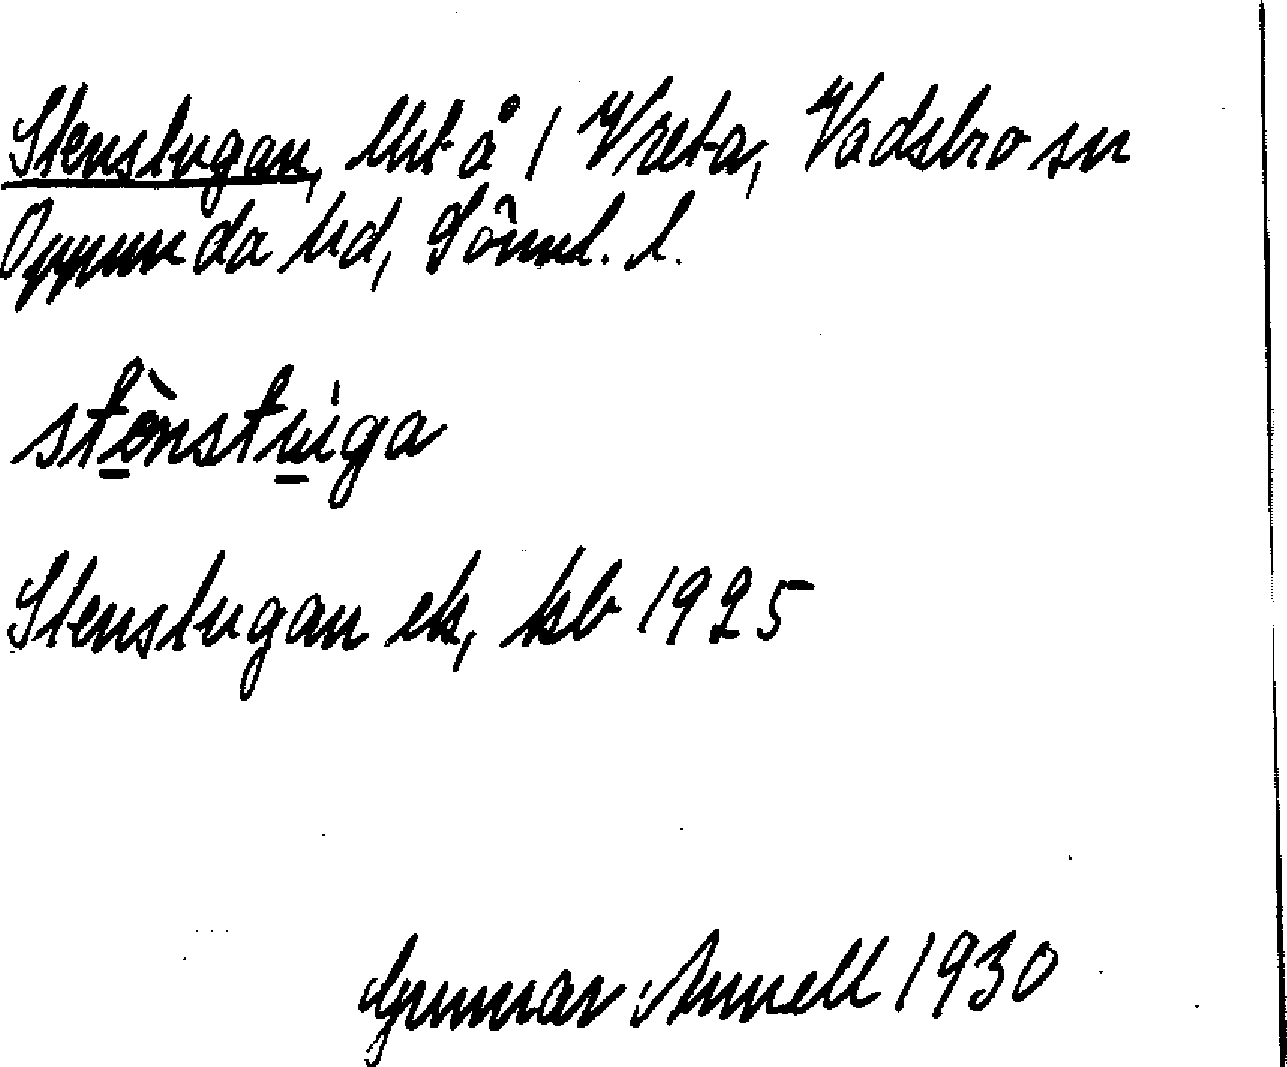 Stenstugan, lht å 1 Vreta, Vadsbro sn
Oppunda hd, Sörml. l.
stènstùga
Stenstugan ek, kb 1925
Gunnar Annell 1930